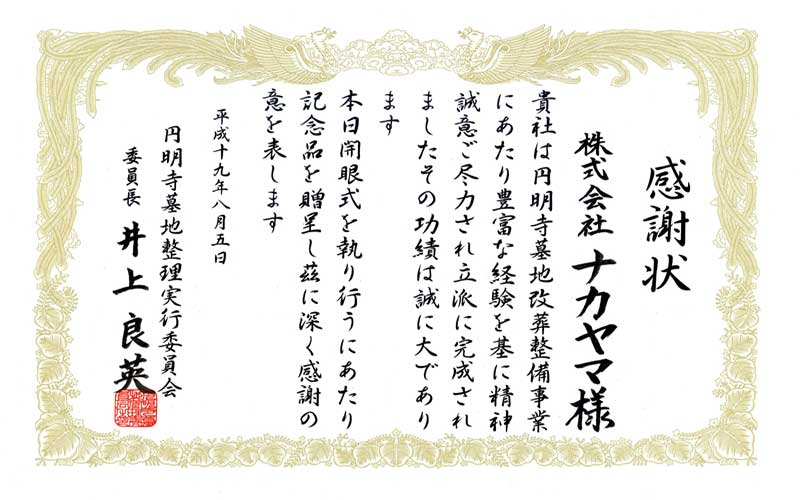 感謝状
株式会社 ナカヤマ様
貴社は円明寺墓地改葬整備事業
にあたり豊富な経験を基に精神
誠意ご尽力され立派に完成され
ましたその功績は誠に大であり
ます
本日開眼式を執り行うにあたり
記念品を贈呈し茲に深く感謝の
意を表します
平成十九年八月五日
円明寺墓地整理実行委員会
委員長 井上良英